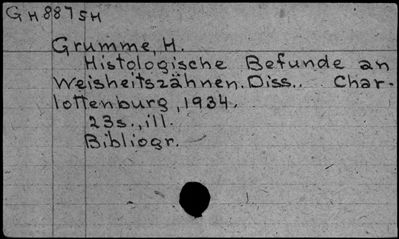 GH887SH
Grumme, H.
Histologische Befunde an
Weisheitszähnen. Diss.. Char-
lottenburg, 1934.
23s., ill.
Bibliogr.